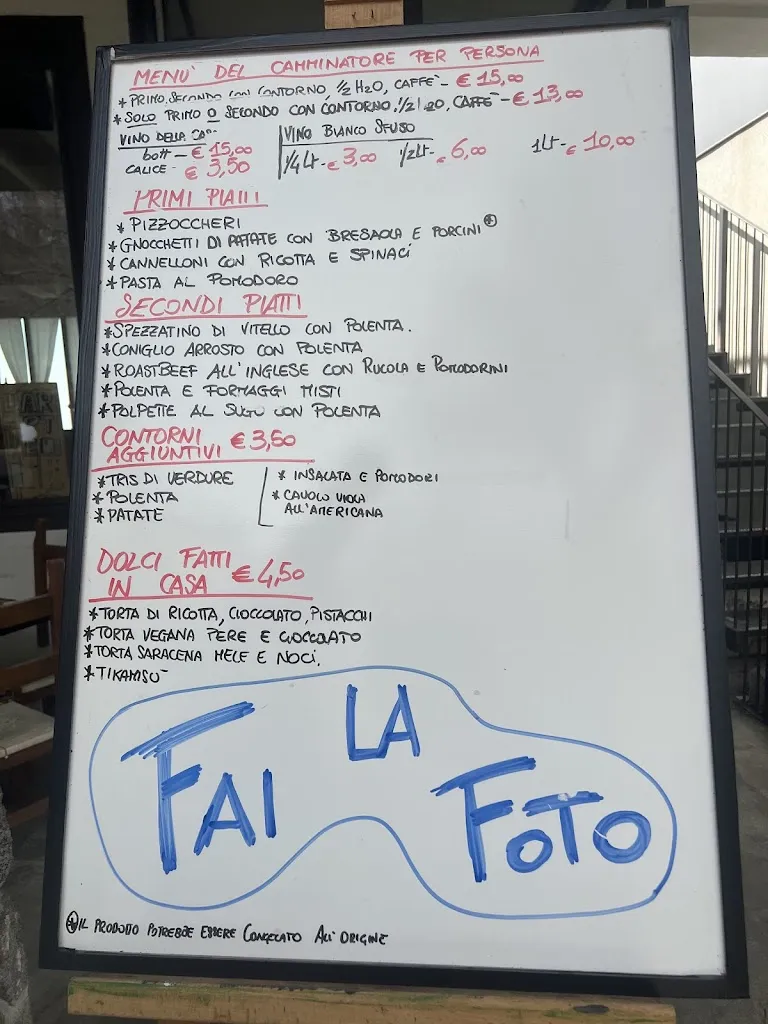 MENU' DEL CAMMINATORE PER PERSONA
* PRIMO, SECONDO CON CONTORNO, 1/2 H2O, CAFFE' - € 15,00
* SOLO PRIMO O SECONDO CON CONTORNO, 1/2 H2O, CAFFE' - € 13,00
VINO DELLA CASA
bott - € 15,00
CALICE - € 3,50
VINO BIANCO SFUSO
1/4 Lt - € 3,00 1/2 Lt - € 6,00 1 Lt - € 10,00
PRIMI PIATTI
* PIZZOCCHERI
* GNOCCHETTI DI PATATE CON BRESAOLA E PORCINI *
* CANNELLONI CON RICOTTA E SPINACI
* PASTA AL POMODORO
SECONDI PIATTI
* SPEZZATINO DI VITELLO CON POLENTA.
* CONIGLIO ARROSTO CON POLENTA
* ROASTBEEF ALL'INGLESE CON RUCOLA E POMODORINI
* POLENTA E FORMAGGI MISTI
* POLPETTE AL SUGO CON POLENTA
CONTORNI AGGIUNTIVI € 3,50
* TRIS DI VERDURE
* POLENTA
* PATATE
* INSALATA E POMODORI
* CAVOLO VIOLA
ALL'AMERICANA
DOLCI FATTI
IN CASA € 4,50
* TORTA DI RICOTTA, CIOCCOLATO, PISTACCHI
* TORTA VEGANA PERE E CIOCCOLATO
* TORTA SARACENA MELE E NOCI.
* TIRAMISU'
FAI LA FOTO
* IL PRODOTTO POTREBBE ESSERE CONGELATO ALL'ORIGINE